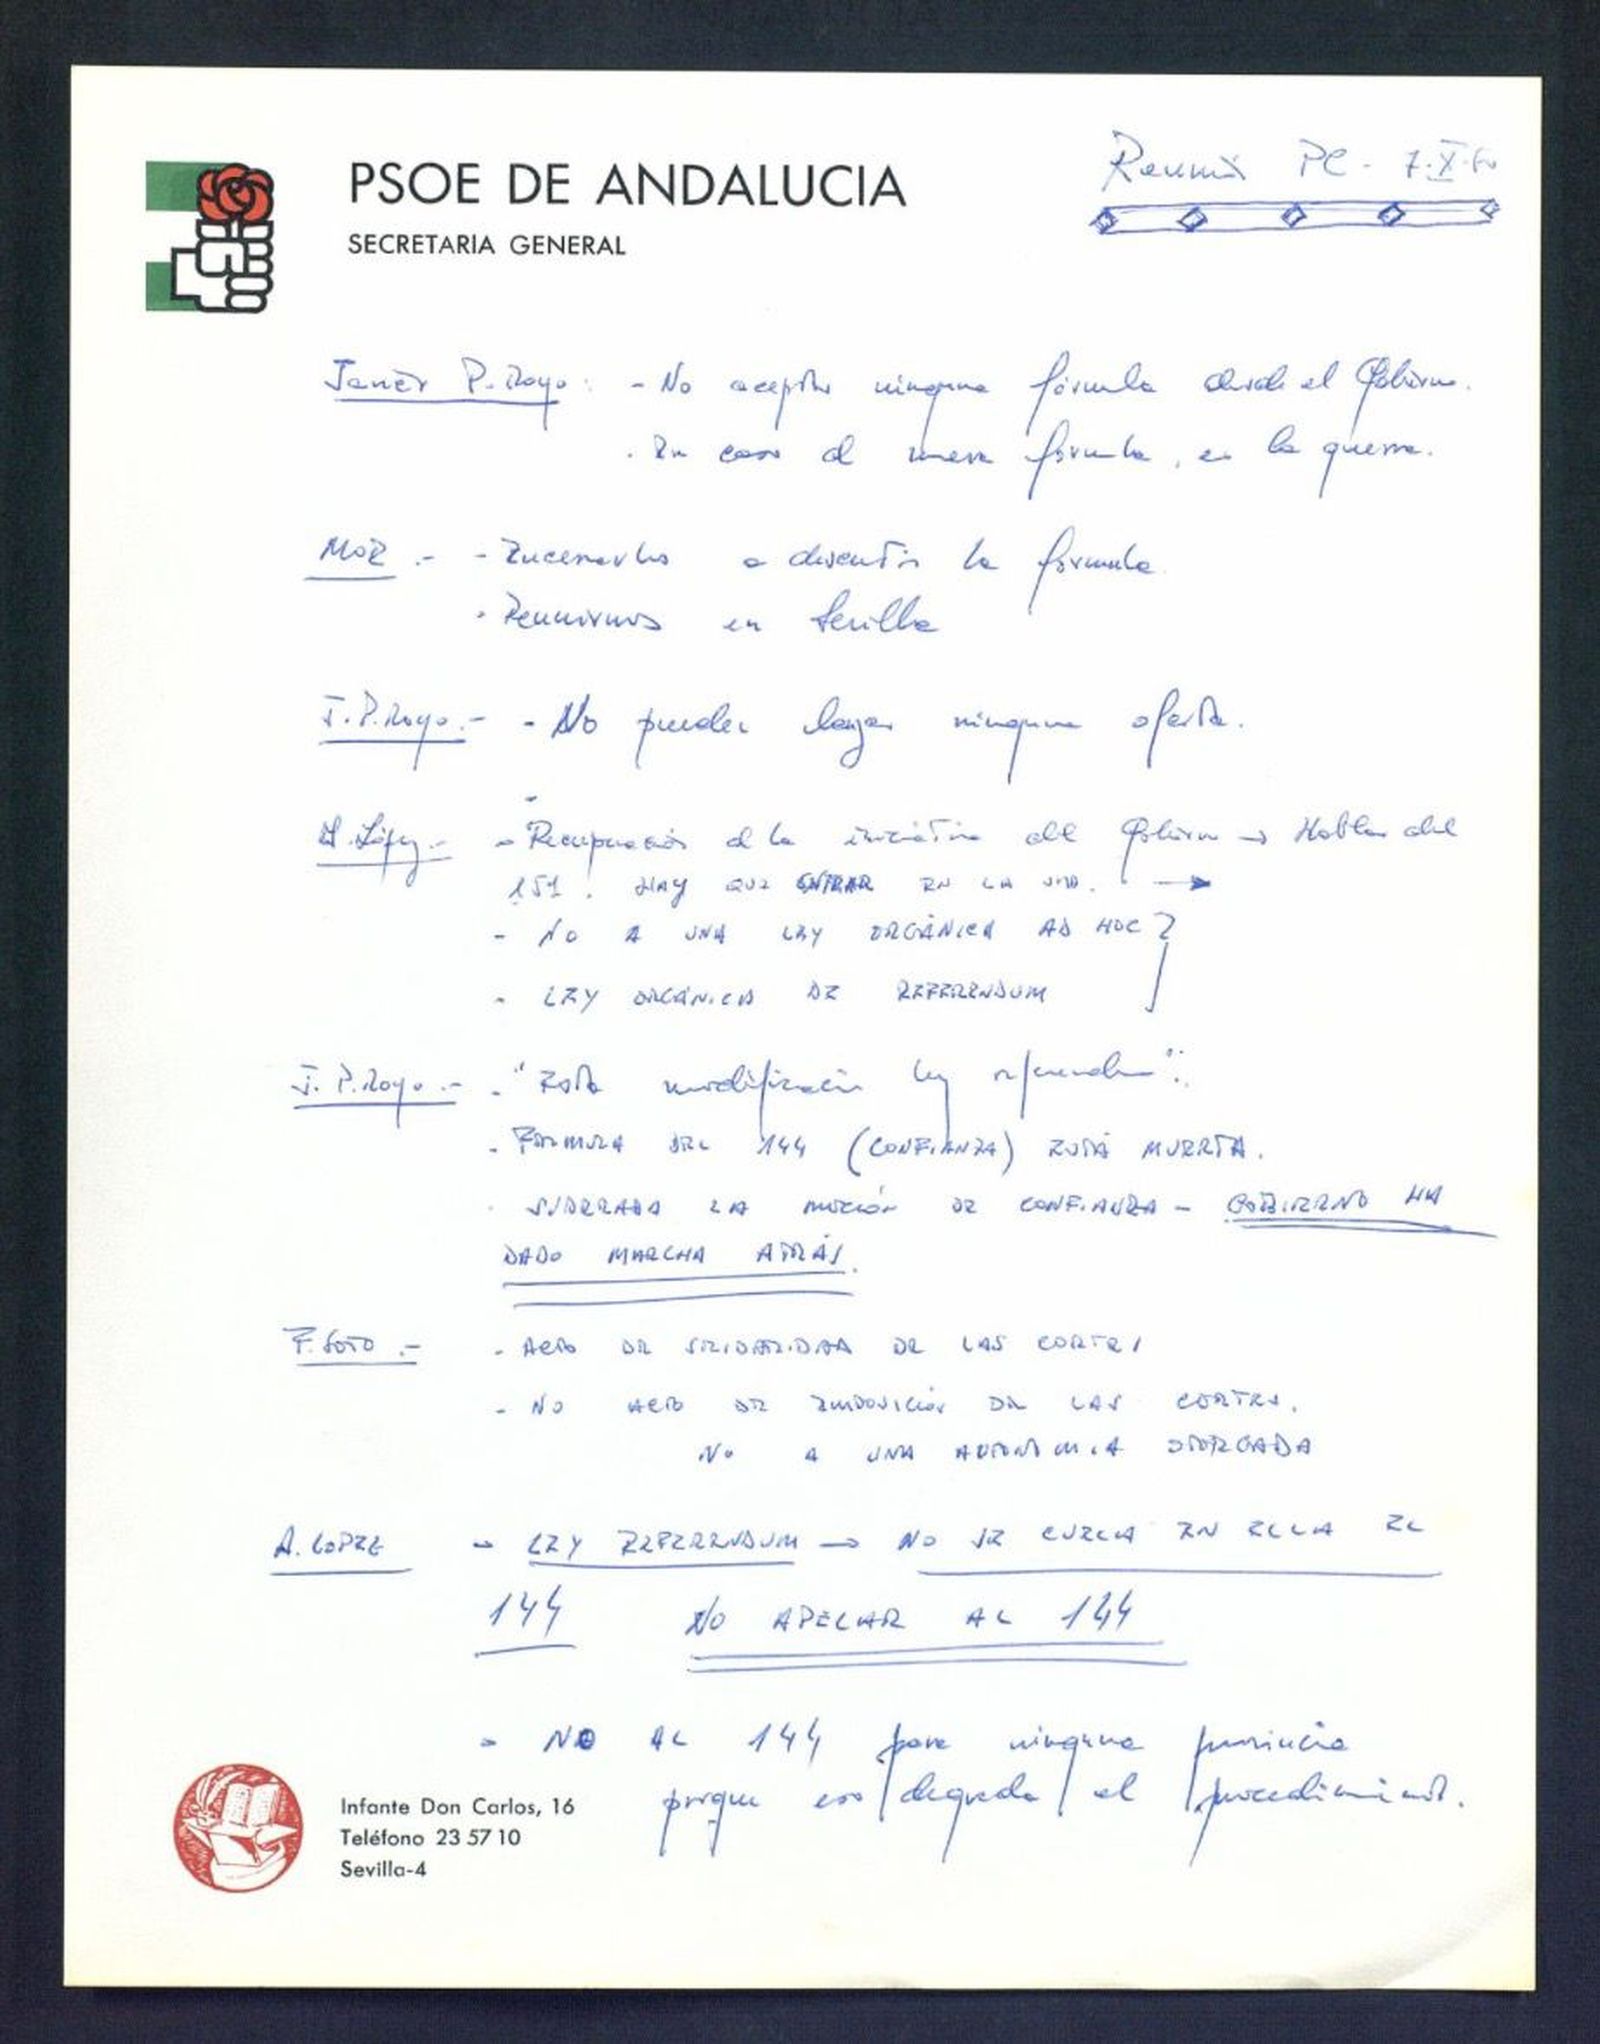 PSOE DE ANDALUCIA
SECRETARIA GENERAL
Reunión PC - 7-X-80
Javier P. Royo: - No aceptar ninguna fórmula desde el Gobierno.
. En caso d nueva fórmula, es la guerra.
MOR.- - Encerrarlos a discutir la fórmula
. Reunirnos en Sevilla
J. P. Royo.- - No pueden hacer ninguna oferta.
A. López.- - Recuperación d la iniciativa del Gobierno → Hablar del
151. HAY QUE ENTRAR EN LA VIA. →
- NO A UNA LEY ORGÁNICA AD HOC
- LEY ORGÁNICA DE REFERENDUM
J. P. Royo.- . "Esta modificación ley referendum":
. FORMULA DEL 144 (CONFIANZA) ESTÁ MUERTA.
. SUPERADA LA MOCIÓN DE CONFIANZA - GOBIERNO HA
DADO MARCHA ATRÁS.
F. SOTO.- - ACTO DE SOLIDARIDAD DE LAS CORTES
- NO ACTO DE IMPOSICIÓN DE LAS CORTES.
NO A UNA AUTONOMIA OTORGADA
A. LOPEZ - LEY REFERENDUM → NO SE CUELA EN ELLA EL
144 NO APELAR AL 144
- NO AL 144 para ninguna provincia
porque eso degrada el procedimiento.
Infante Don Carlos, 16
Teléfono 23 57 10
Sevilla-4